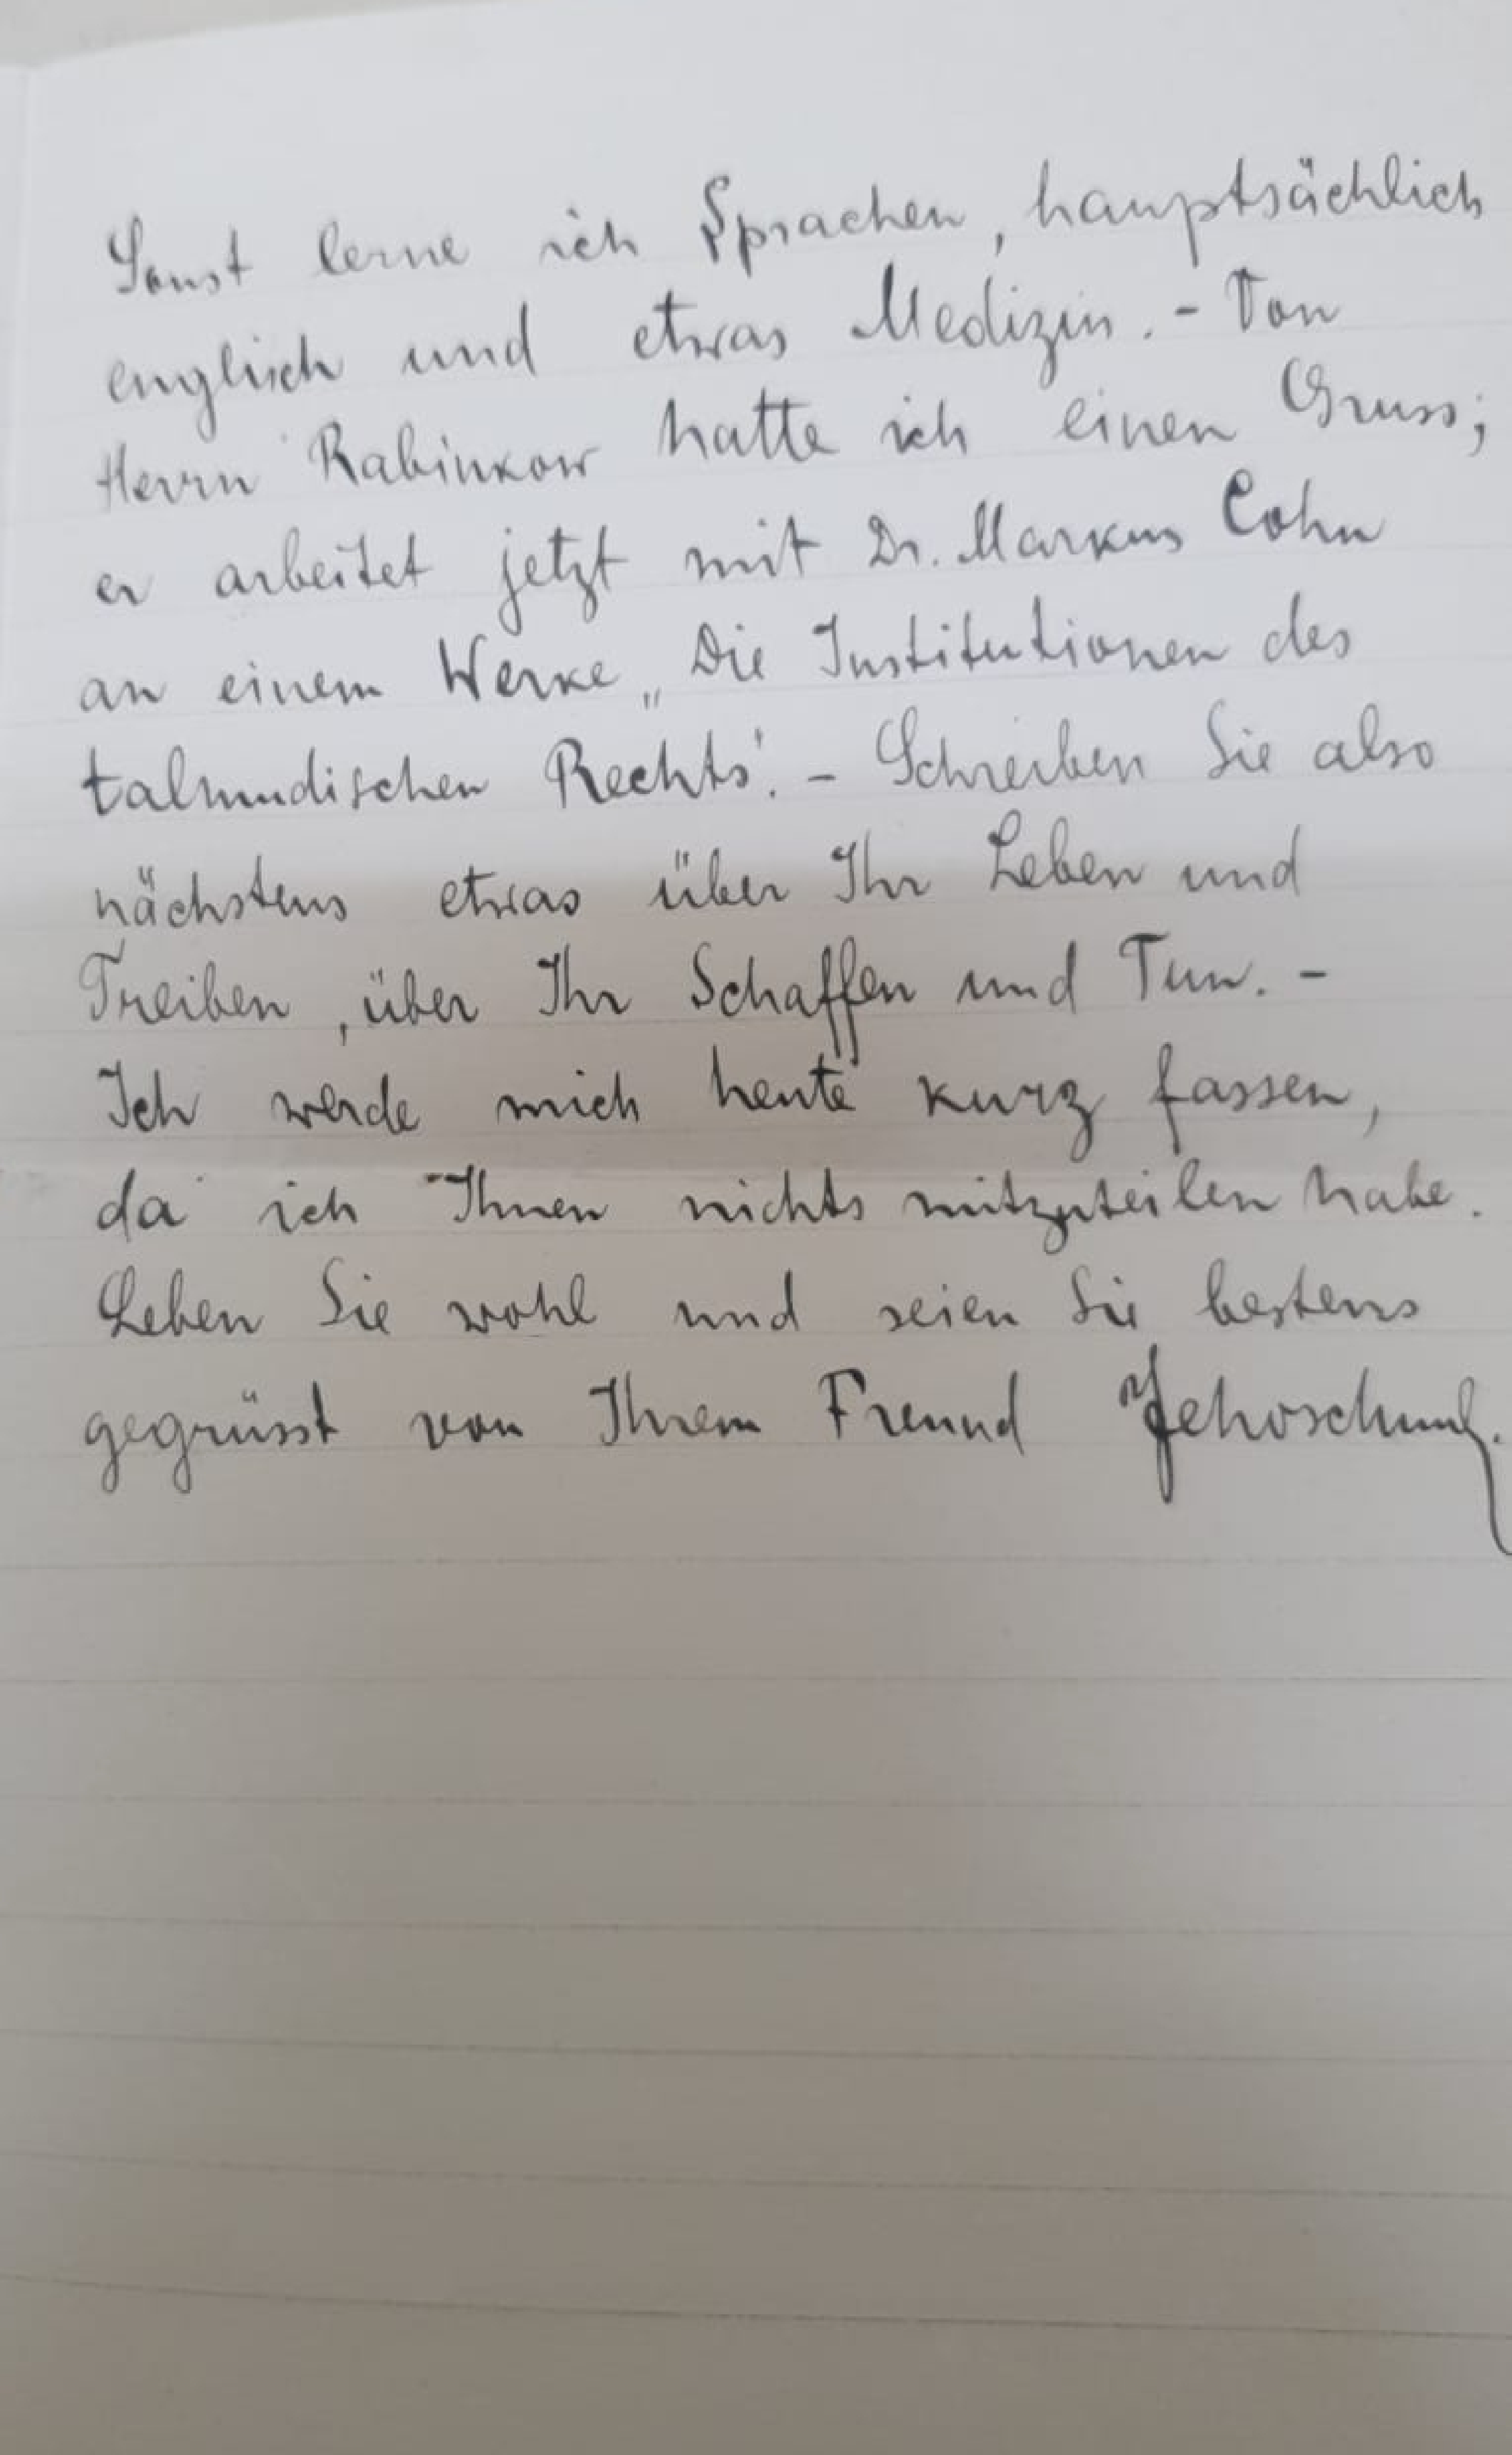 Sonst lerne ich Sprachen, hauptsächlich
englisch und etwas Medizin. - Von
Herrn Rabinkow hatte ich einen Gruss;
er arbeitet jetzt mit Dr. Markus Cohn
an einem Werke „Die Institutionen des
talmudischen Rechts". - Schreiben Sie also
nächstens etwas über Ihr Leben und
Treiben, über Ihr Schaffen und Tun. -
Ich werde mich heute kurz fassen,
da ich Ihnen nichts mitzuteilen habe.
Leben Sie wohl und seien Sie bestens
gegrüsst von Ihrem Freund Jehoschua.